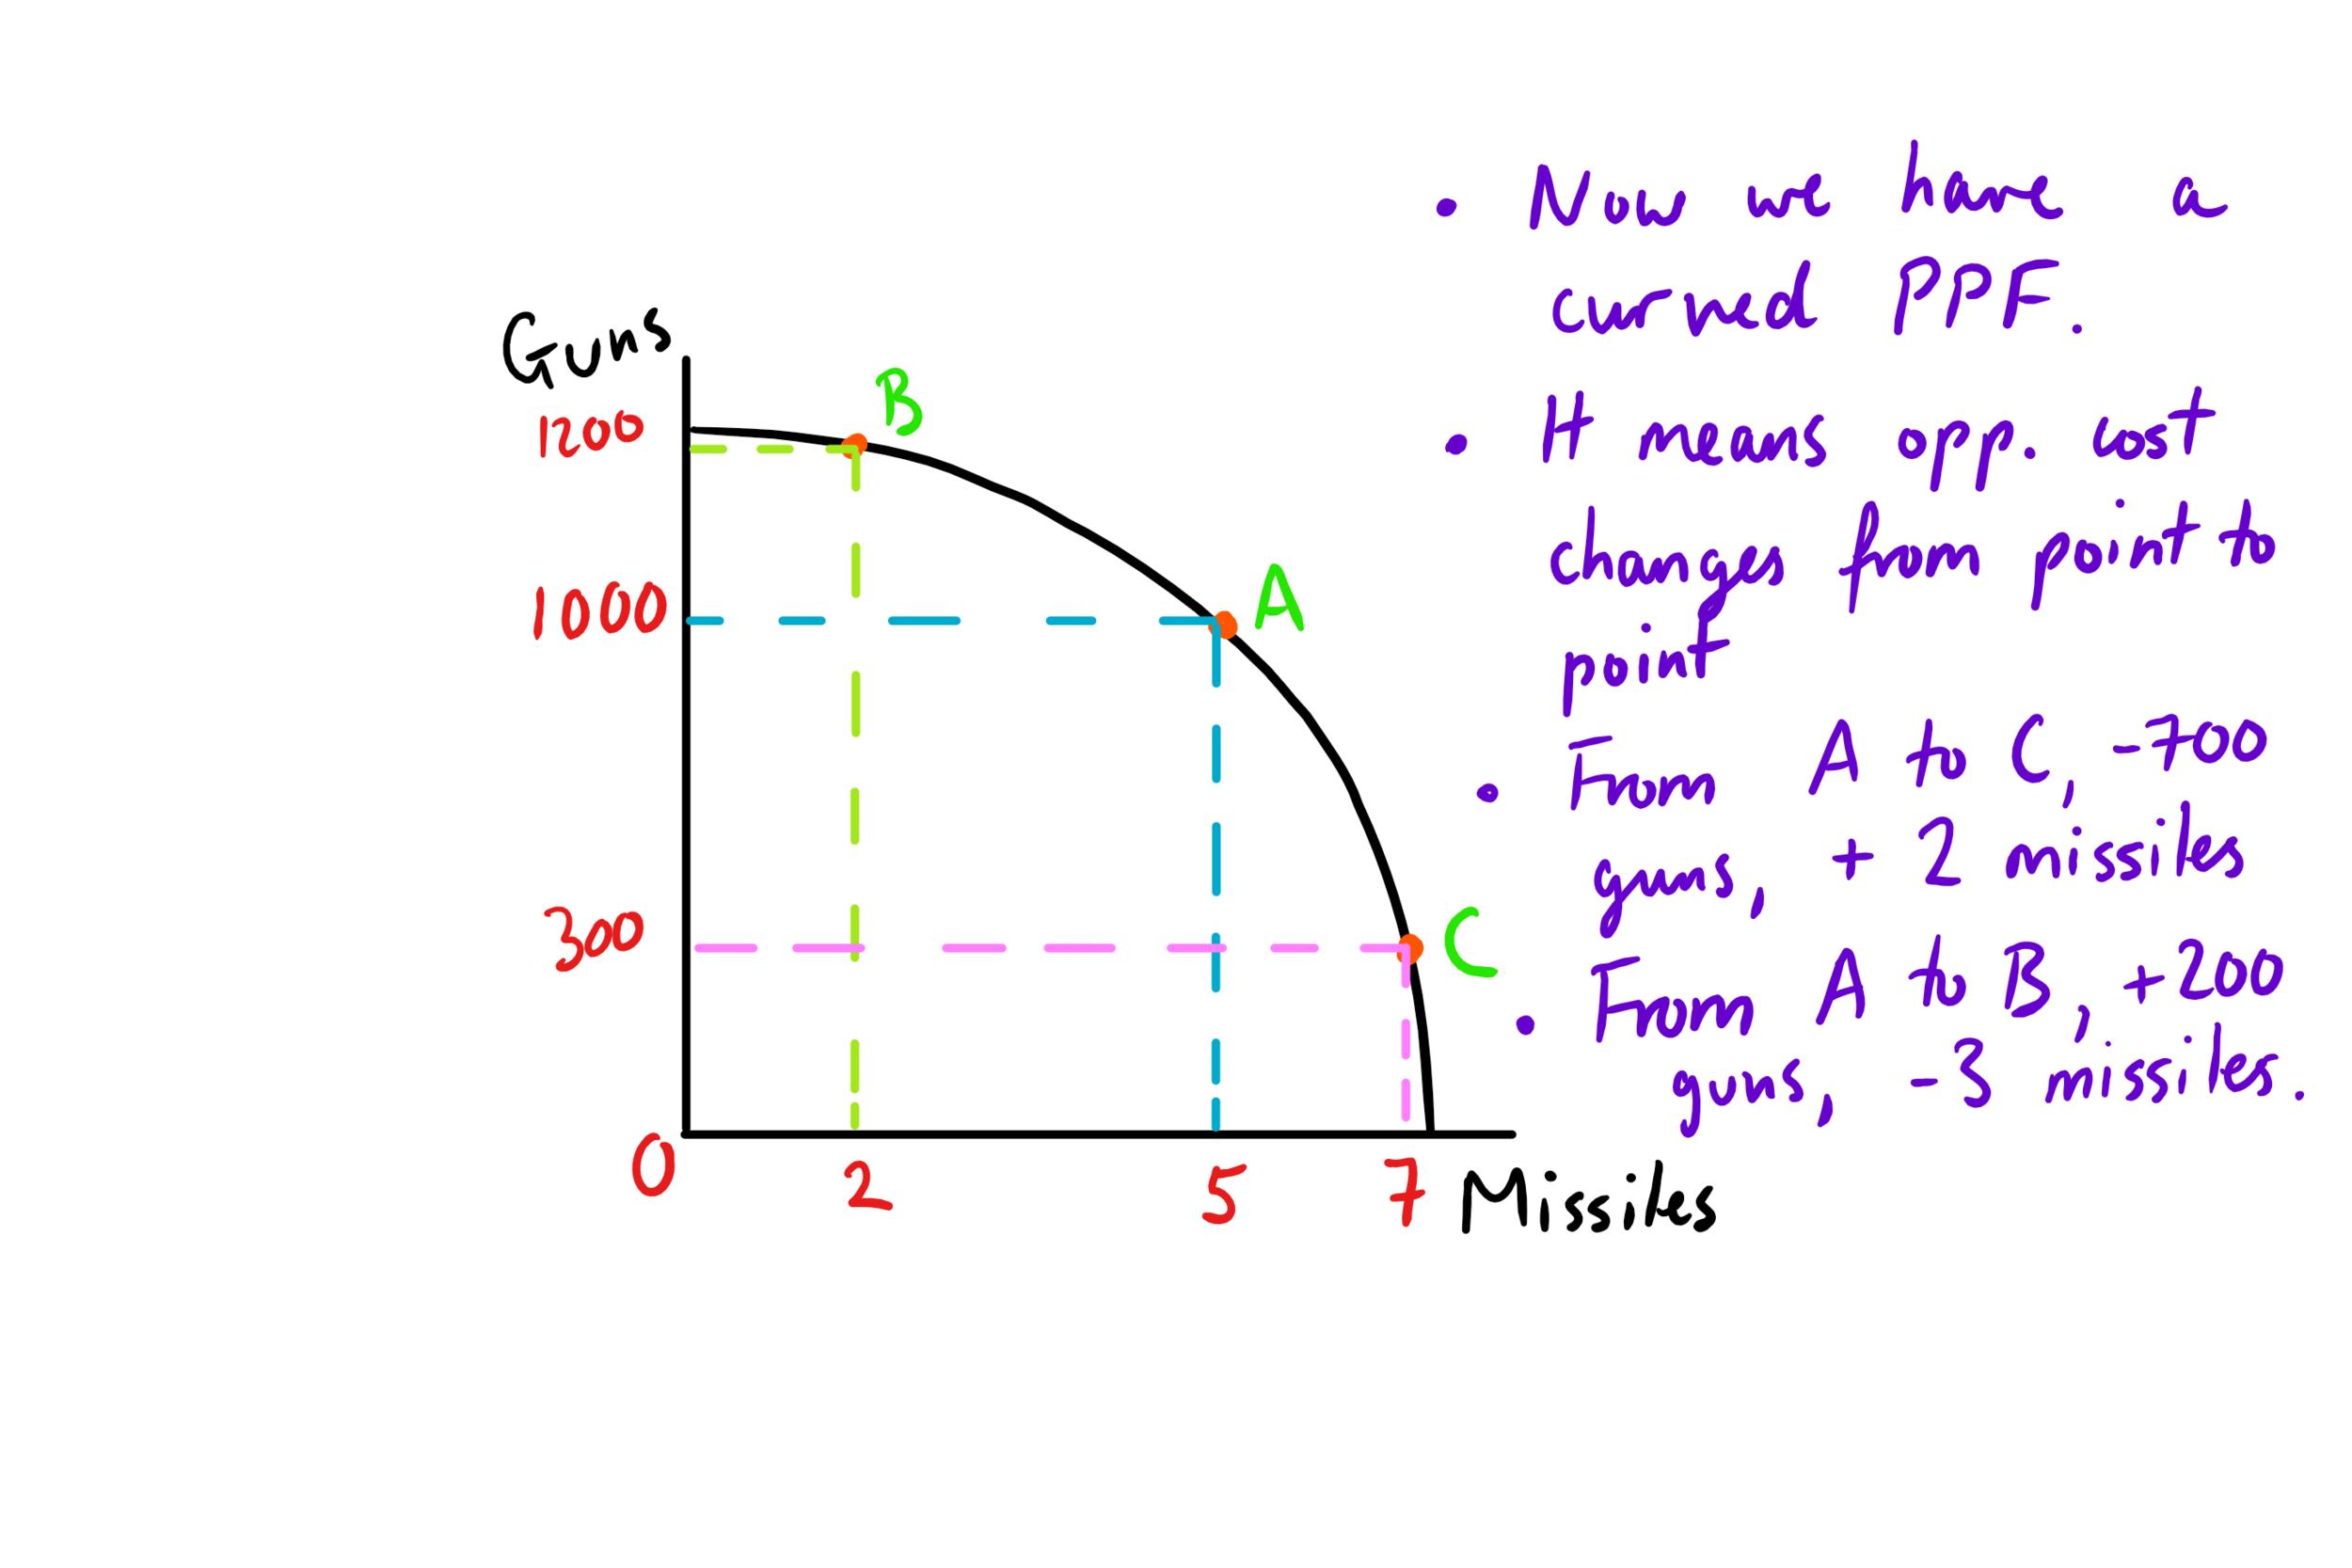 Guns
1200
1000
300
0
2
5
7
Missiles
B
A
C
• Now we have a
curved PPF.
• It means opp. cost
changes from point to
point
• From A to C, -700
guns, + 2 missiles
• From A to B, +200
guns, -3 missiles.